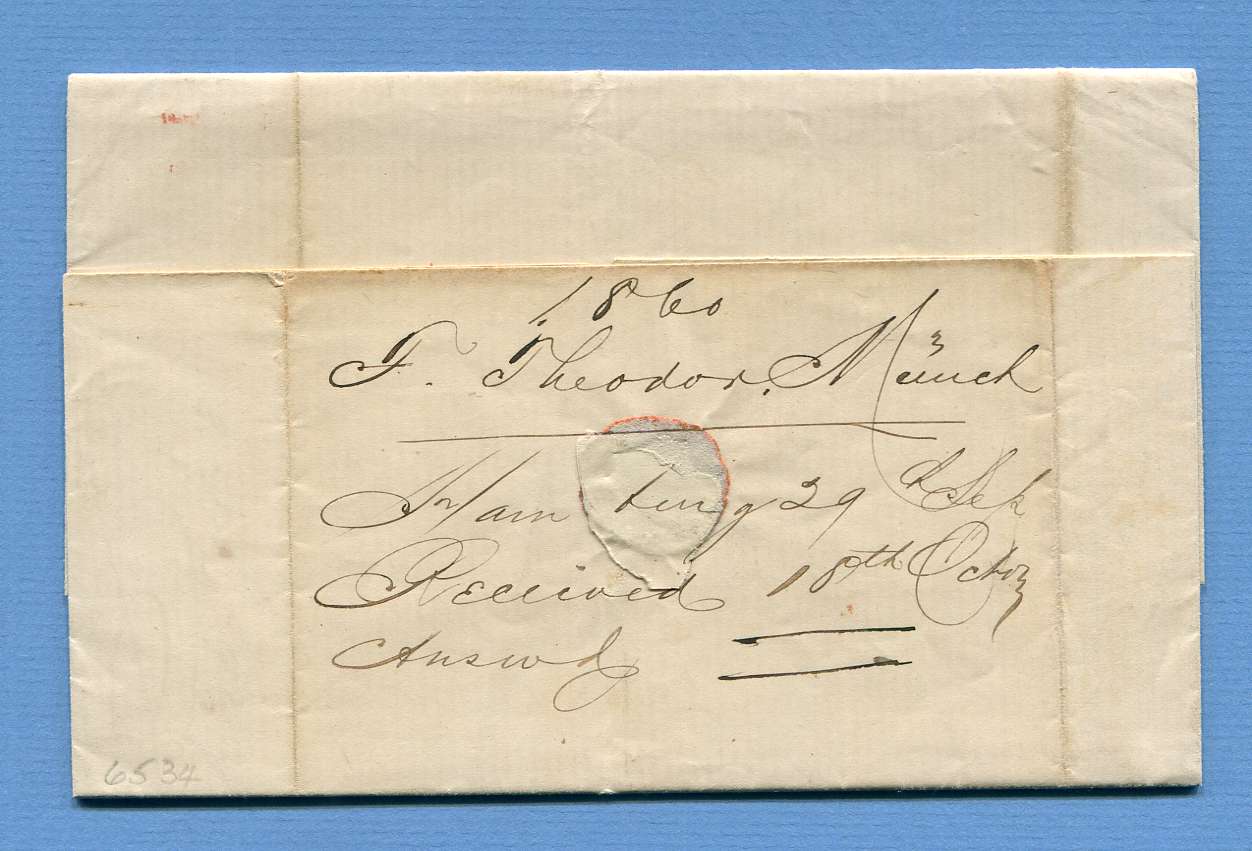 1860
F. Theodor. Münch
Hamburg 29th Sep
Received 18th Octo
Answd
6534